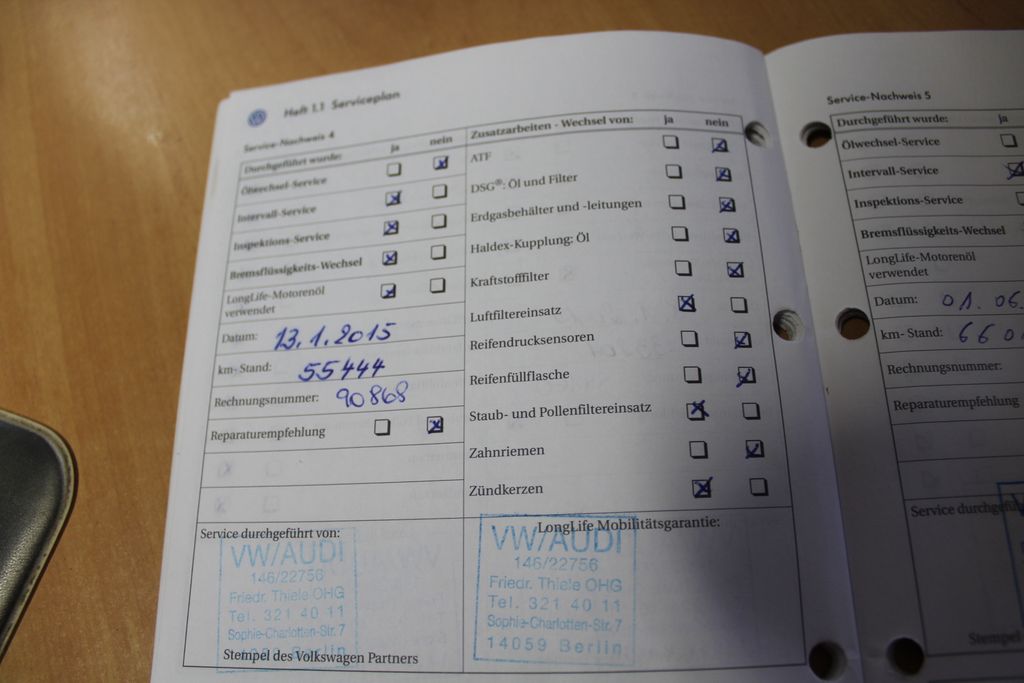 Heft 1.1 Serviceplan
Service-Nachweis 4
Durchgeführt wurde: ja nein
Ölwechsel-Service
Intervall-Service
Inspektions-Service
Bremsflüssigkeits-Wechsel
LongLife-Motorenöl
verwendet
Datum: 13.1.2015
km- Stand: 55444
Rechnungsnummer: 90868
Reparaturempfehlung
Zusatzarbeiten - Wechsel von: ja nein
ATF
DSG®: Öl und Filter
Erdgasbehälter und -leitungen
Haldex-Kupplung: Öl
Kraftstofffilter
Luftfiltereinsatz
Reifendrucksensoren
Reifenfüllflasche
Staub- und Pollenfiltereinsatz
Zahnriemen
Zündkerzen
Service durchgeführt von:
VW/AUDI
146/22756
Friedr. Thiele OHG
Tel. 321 40 11
Sophie-Charlotten-Str. 7
14059 Berlin
Stempel des Volkswagen Partners
LongLife Mobilitätsgarantie:
VW/AUDI
146/22756
Friedr. Thiele OHG
Tel. 321 40 11
Sophie-Charlotten-Str. 7
14059 Berlin
Service-Nachweis 5
Durchgeführt wurde: ja
Ölwechsel-Service
Intervall-Service
Inspektions-Service
Bremsflüssigkeits-Wechsel
LongLife-Motorenöl
verwendet
Datum: 01.06.
km- Stand: 660
Rechnungsnummer:
Reparaturempfehlung
Service durchgeführt
Stempel